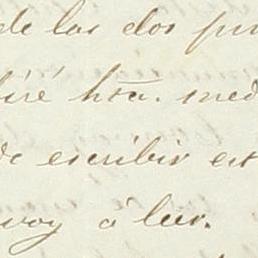 de las dos pr
iré hta. med
de escribir est
voy á leer.